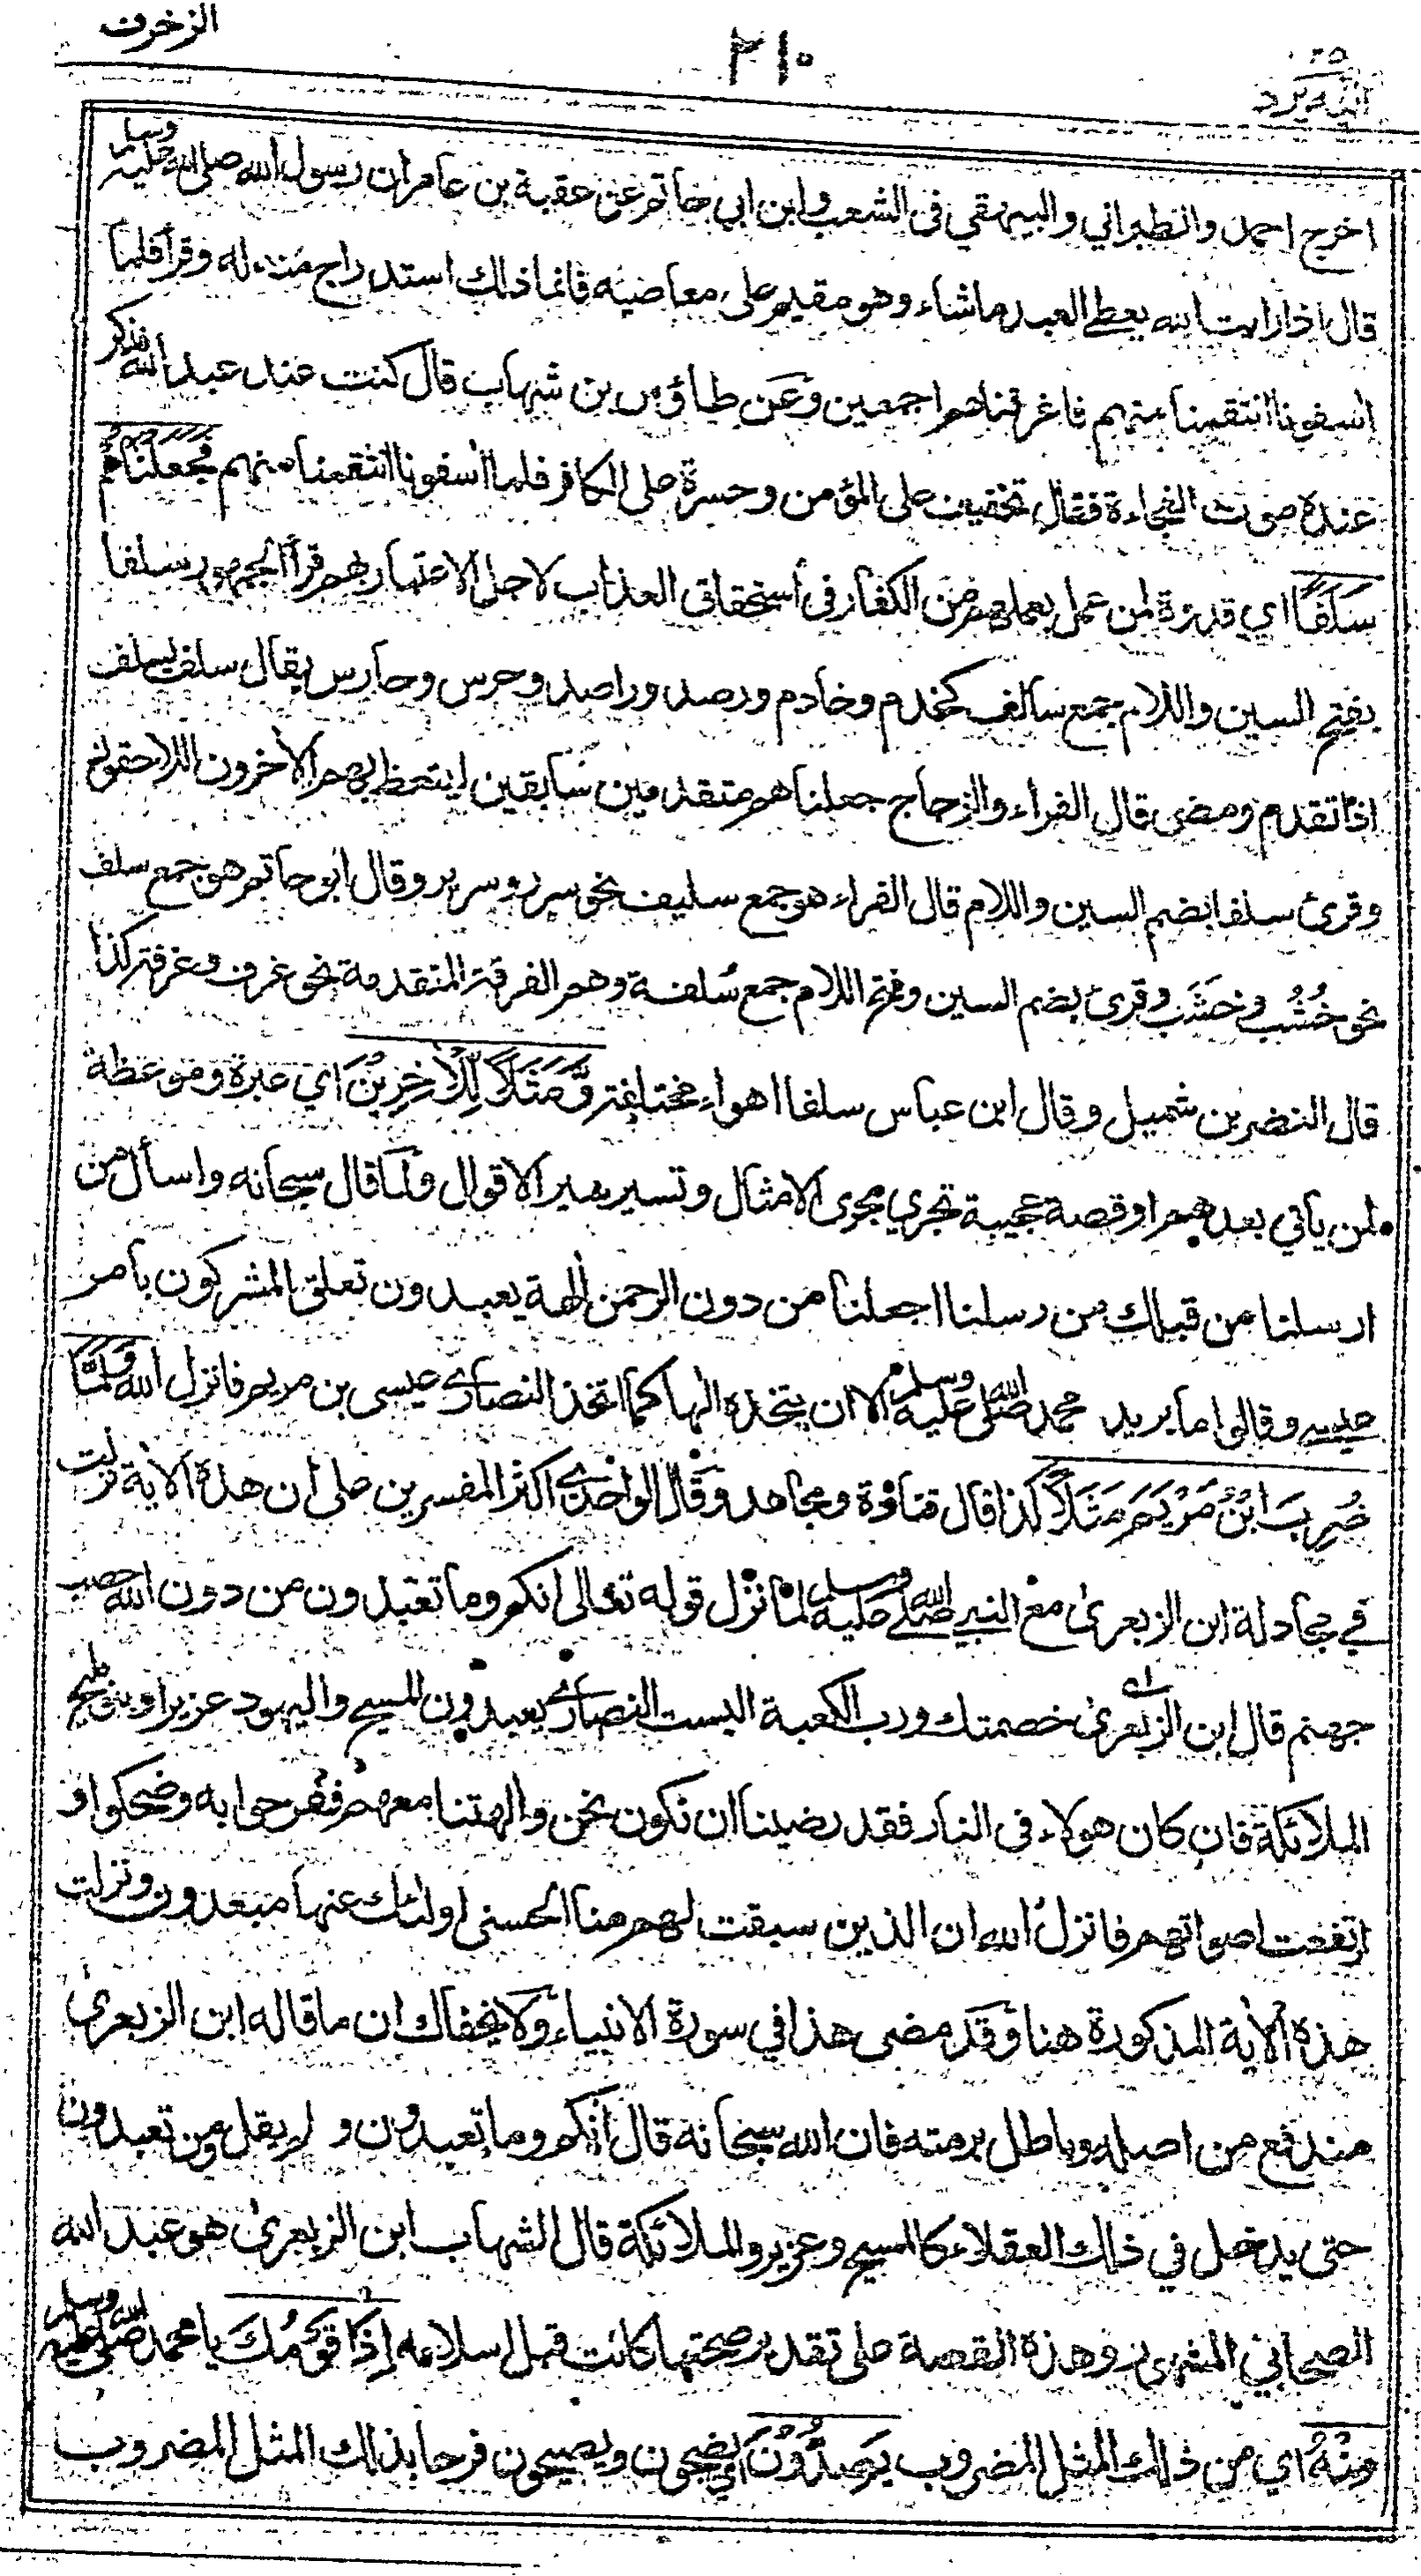 الزخرف
٢١٠
اليه يرد ٢٥
اخرج احمد والطبراني والبيهقي في الشعب وابن ابي حاتم عن عقبة بن عامر ان رسول الله صلى الله عليه وسلم
قال اذا رايت الله يعطي العبد ما شاء وهو مقيم على معاصيه فانما ذلك استدراج منه له وقرأ فلما
اسفونا انتقمنا منهم فاغرقناهم اجمعين وعن طاؤس بن شهاب قال كنت عند عبد الله فذكر
عنده موت الفجاءة فقال تخفيف على المؤمن وحسرة على الكافر فلما أسفونا انتقمنا منهم فَجَعَلْنَاهُمْ
سَلَفًا اي قدوة لمن عمل بعملهم من الكفار في استحقاق العذاب لاجل الاعتبار بهم قرأ الجمهور سلفا
بفتح السين واللام جمع سالف كخدم وخادم ورصد وراصد وحرس وحارس يقال سلف يسلف
اذا تقدم ومضى قال الفراء والزجاج جعلناهم متقدمين سابقين ليتعظ بهم الأخرون اللاحقون
وقرئ سلفا بضم السين واللام قال الفراء هو جمع سليف نحو سرر وسرير وقال ابو حاتم هو جمع سلف
نحو خُشُب وخَشَب وقرئ بضم السين وفتح اللام جمع سُلفة وهم الفرقة المتقدمة نحو غرف وغرفة كذا
قال النضر بن شميل وقال ابن عباس سلفا اهواء مختلفة وَّمَثَلًا لِّلْاٰخِرِيْنَ اي عبرة وموعظة
لمن يأتي بعدهم او قصة عجيبة تجري مجرى الامثال وتسير مسير الاقوال ولما قال سبحانه واسأل من
ارسلنا من قبلك من رسلنا اجعلنا من دون الرحمن ألهة يعبدون تعلق المشركون بأمر
عيسى وقالوا ما يريد محمد صلى الله عليه وسلم الا ان يتخذه الها كما اتخذ النصارى عيسى بن مريم فانزل الله وَلَمَّا
ضُرِبَ ابْنُ مَرْيَمَ مَثَلًا كذا قال قتادة ومجاهد وقال الواحدي اكثر المفسرين على ان هذه الاية نزلت
في مجادلة ابن الزبعرى مع النبي صلى الله عليه وسلم لما نزل قوله تعالى انكم وما تعبدون من دون الله حصب
جهنم قال ابن الزبعرى خصمتك ورب الكعبة اليست النصارى يعبدون المسيح واليهود عزيرا وبنو مليح
الملائكة فان كان هولاء في النار فقد رضينا ان نكون نحن وألهتنا معهم ففرحوا به وضحكوا و
ارتفعت اصواتهم فانزل الله ان الذين سبقت لهم منا الحسنى اولئك عنها مبعدون ونزلت
هذه الاية المذكورة هنا وقد مضى هذا في سورة الانبياء ولا يخفاك ان ما قاله ابن الزبعرى
مندفع من اصله وباطل برمته فان الله سبحانه قال انكم وما تعبدون ولم يقل ومن تعبدون
حتى يدخل في ذلك العقلاء كالمسيح وعزير والملائكة قال الشهاب ابن الزبعرى هو عبد الله
الصحابي المشهور وهذه القصة على تقدير صحتها كانت قبل اسلامه إِذَا قَوْمُكَ يا محمد صلى الله عليه وسلم
مِنْهُ اي من ذلك المثل المضروب يَصِدُّوْنَ اي يضجون ويصيحون فرحا بذلك المثل المضروب